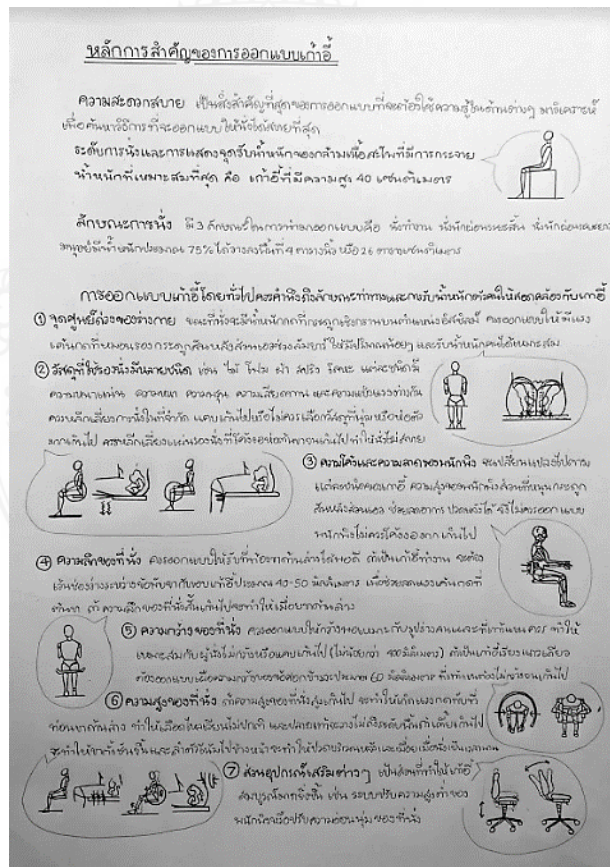 หลักการสำคัญของการออกแบบเก้าอี้
ความสะดวกสบาย เป็นสิ่งสำคัญที่สุดของการออกแบบที่จะต้องใช้ความรู้ในด้านต่างๆ มาวิเคราะห์
เพื่อค้นหาวิธีการที่จะออกแบบให้นั่งได้สบายที่สุด
ระดับการนั่งและการแสดงจุดรับน้ำหนักของกล้ามเนื้อสะโพกที่มีการกระจาย
น้ำหนักที่เหมาะสมที่สุด คือ เก้าอี้ที่มีความสูง 40 เซนติเมตร
ลักษณะการนั่ง มี 3 ลักษณะในการออกแบบคือ นั่งทำงาน นั่งพักผ่อนระยะสั้น นั่งพักผ่อนระยะยาว
มนุษย์มีน้ำหนักประมาณ 75% ได้วางลงพื้นที่ 4 ตารางนิ้ว หรือ 26 ตารางเซนติเมตร
การออกแบบเก้าอี้โดยทั่วไปควรคำนึงถึงลักษณะท่าทางและการรับน้ำหนักตัวคนให้สอดคล้องกับเก้าอี้
① จุดศูนย์ถ่วงของร่างกาย ขณะที่นั่งจะมีน้ำหนักกดที่กระดูกเชิงกราน
② วัสดุที่ใช้รองนั่งมีหลายชนิด เช่น ไม้ โฟม ผ้า สปริง โลหะ แต่ละชนิดมี
ความหนาแน่น ความหนา ความนุ่ม ความเสียดทาน และความแข็งแรงต่างกัน
ควรหลีกเลี่ยงการนั่งในที่จำกัด แคบเกินไปหรือไม่ควรเลือกวัสดุที่นุ่มหรือห่อตัว
มากเกินไป ควรหลีกเลี่ยงแผ่นรองนั่งที่โค้ง เกินไปทำให้นั่งไม่สบาย
③ ความโค้งและความลาดของพนักพิง จะเปลี่ยนแปลงไปตาม
แต่ละชนิดของเก้าอี้ ความสูงของพนักพิงส่วนที่หนุนกระดูก
สันหลังส่วนเอว ช่วยลดอาการ ปวดหลังได้ จึงไม่ควรออกแบบ
พนักพิงไม่ควรโค้งงอมากเกินไป
④ ความลึกของที่นั่ง ควรออกแบบให้รับที่ท่อนขาด้านล่างได้พอดี ถ้าเป็นเก้าอี้ทำงาน จะต้อง
เว้นช่องว่างระหว่างข้อพับขากับขอบเก้าอี้ประมาณ 40-50 มิลลิเมตร เพื่อช่วยลดแรงดันกดที่
ต้นขา ถ้าความลึกของที่นั่งสั้นเกินไปจะทำให้เมื่อยขาด้านล่าง
⑤ ความกว้างของที่นั่ง ควรออกแบบให้กว้างพอเหมาะกับรูปร่างคนและที่เท้าแขนควร ทำให้
เหมาะสมกับผู้นั่งไม่กว้างหรือแคบเกินไป (ไม่น้อยกว่า 400 มิลลิเมตร) ถ้าเป็นเก้าอี้เรียงแถวเดียว
ต้องออกแบบเผื่อความกว้างของข้อศอกข้างละประมาณ 60 มิลลิเมตร
⑥ ความสูงของที่นั่ง ถ้าความสูงของที่นั่งสูงเกินไป จะทำให้เกิดแรงกดทับที่
ท่อนขาด้านล่าง ทำให้เลือดไหลเวียนไม่ปกติ
⑦ ส่วนอุปกรณ์เสริมต่างๆ เป็นส่วนที่ทำให้เก้าอี้
สมบูรณ์มากยิ่งขึ้น เช่น ระบบปรับความสูงต่ำของ
พนักพิงเพื่อปรับความอ่อนนุ่มของที่นั่ง